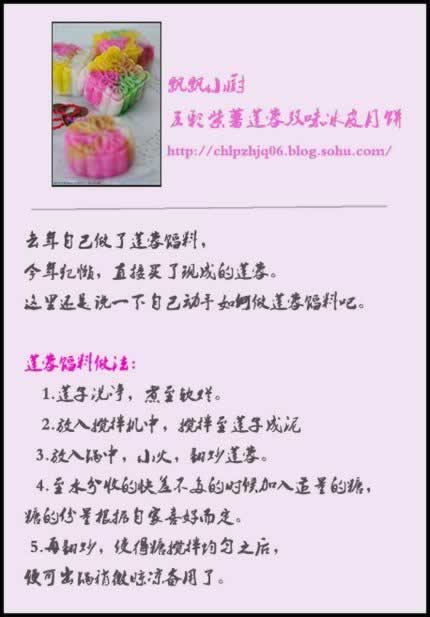 飘飘小厨
五彩紫薯莲蓉双味冰皮月饼
http://chlpzhjq06.blog.sohu.com/
去年自己做了莲蓉馅料，
今年犯懒，直接买了现成的莲蓉。
这里还是说一下自己动手如何做莲蓉馅料吧。
莲蓉馅料做法：
1.莲子洗净，煮至软烂。
2.放入搅拌机中，搅拌至莲子成泥
3.放入锅中，小火，翻炒莲蓉。
4.至水分收的快差不多的时候加入适量的糖，
糖的份量根据自家喜好而定。
5.再翻炒，使得糖搅拌均匀之后，
便可出锅稍微晾凉备用了。